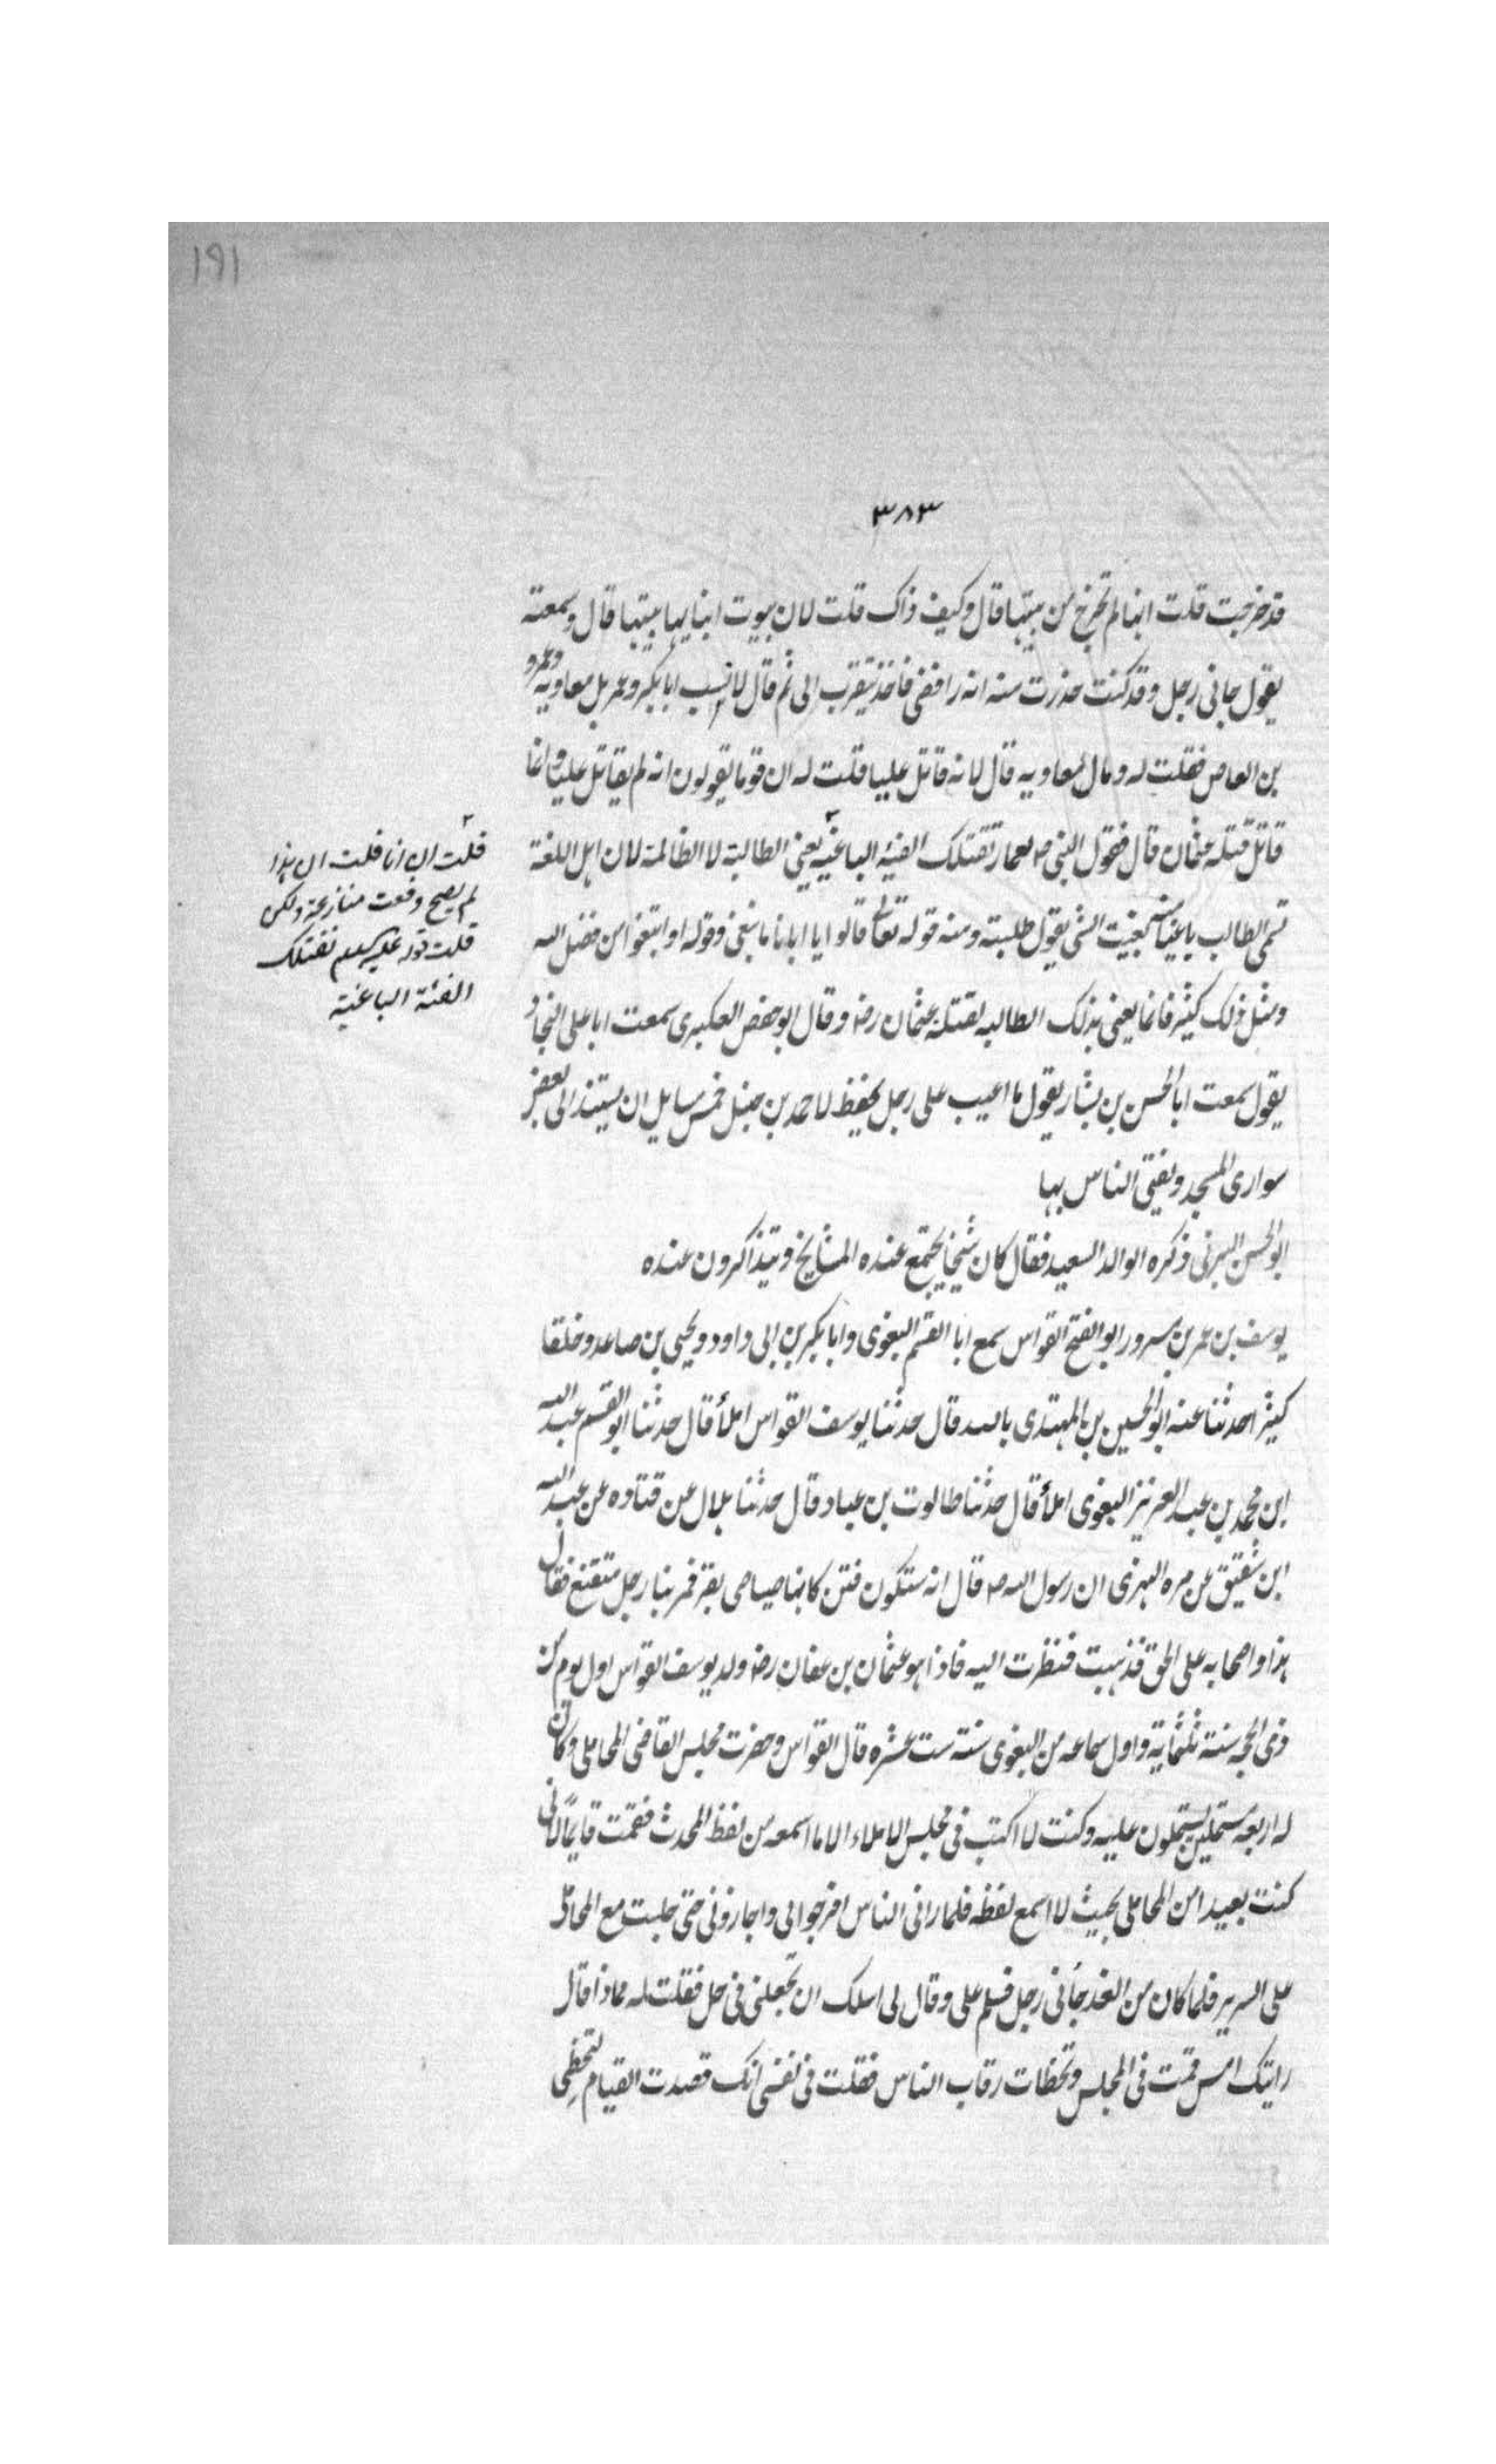 ١٩١
٣٨٣
قد خرجت قلت انها لم تخرج من بيتها قال وكيف ذاك قلت لان بيوت ابنايها بيتها قال وسمعته
يقول جانى رجل وقد كنت حذرت منه انه رافضى فاخذ يتقرب الى ثم قال لا نسب ابا بكر وعمر بل معاويه وعمرو
بن العاص فقلت له ومال لمعاويه قال لانه قاتل عليا قلت له ان قوما يقولون انه لم يقاتل عليا وانما
قاتل قتلة عثمان قال فقول النبى ص لعمار تقتلك الفئيه الباغيه يعنى الطالبة لا الظالمة لان اهل اللغة
تسمى الطالب باغيا بغيت الشى يقول طلبته ومنه قوله تعالى قالوا يا ابانا ما نبغى وقوله او ابتغوا من فضل الله
ومثل ذلك كثير فانما يعنى بذلك الطالبه لقتلة عثمان رضه وقال ابو حفص العكبرى سمعت ابا على النجاد
يقول سمعت ابا الحسن بن بشار يقول ما اعيب على رجل يحفظ لاحمد بن حنبل خمس مسايل ان يستند الى بعض
سوارى المسجد ويفتى الناس بها
ابو الحسن البرنى ذكره الوالد السعيد فقال كان شيخا يجتمع عنده المشايخ ويتذاكرون عنده
يوسف بن عمر بن مسرور ابو الفتح القواس سمع ابا القسم البغوى وابا بكر بن ابى داود ويحيى بن صاعد وخلقا
كثيرا حدثنا عنه ابو الحسين بن المهتدى بالله قال حدثنا يوسف القواس املأ قال حدثنا ابو القسم عبد الله
ابن محمد بن عبد العزيز البغوى املأ قال حدثنا طالوت بن عباد قال حدثنا بلال عن قتاده عن عبد الله
ابن شقيق عن مره البهزى ان رسول الله ص قال انه ستكون فتن كانها صياصى بقر فمر بنا رجل متقنع فقال
هذا واصحابه على الحق فذهبت فنظرت اليه فاذا هو عثمان بن عفان رضه ولد يوسف القواس اول يوم من
ذى الحجه سنة ثلثماية واول سماعه من البغوى سنة ست عشره قال القواس وحضرت مجلس القاضى المحاملى وكان
له اربعة مستملين يستملون عليه وكنت لا اكتب فى مجلس الاملاء الا ما اسمعه من لفظ المحدث فقمت قايما لانى
كنت بعيدا من المحاملى بحيث لا اسمع لفظه فلما رانى الناس افرجوا لى واجازونى حتى جلست مع المحاملى
على السرير فلما كان من الغد جانى رجل فسلم على وقال لى اسلك ان تجعلنى فى حل فقلت له مماذا قال
رايتك امس قمت فى المجلس وتخطات رقاب الناس فقلت فى نفسى انك قصدت القيام لتخطى
قلت له انا قلت ان هذا
لم يصح وقعت منازعة ولكن
قلت قوله عليه السلام تقتلك
الفئة الباغية